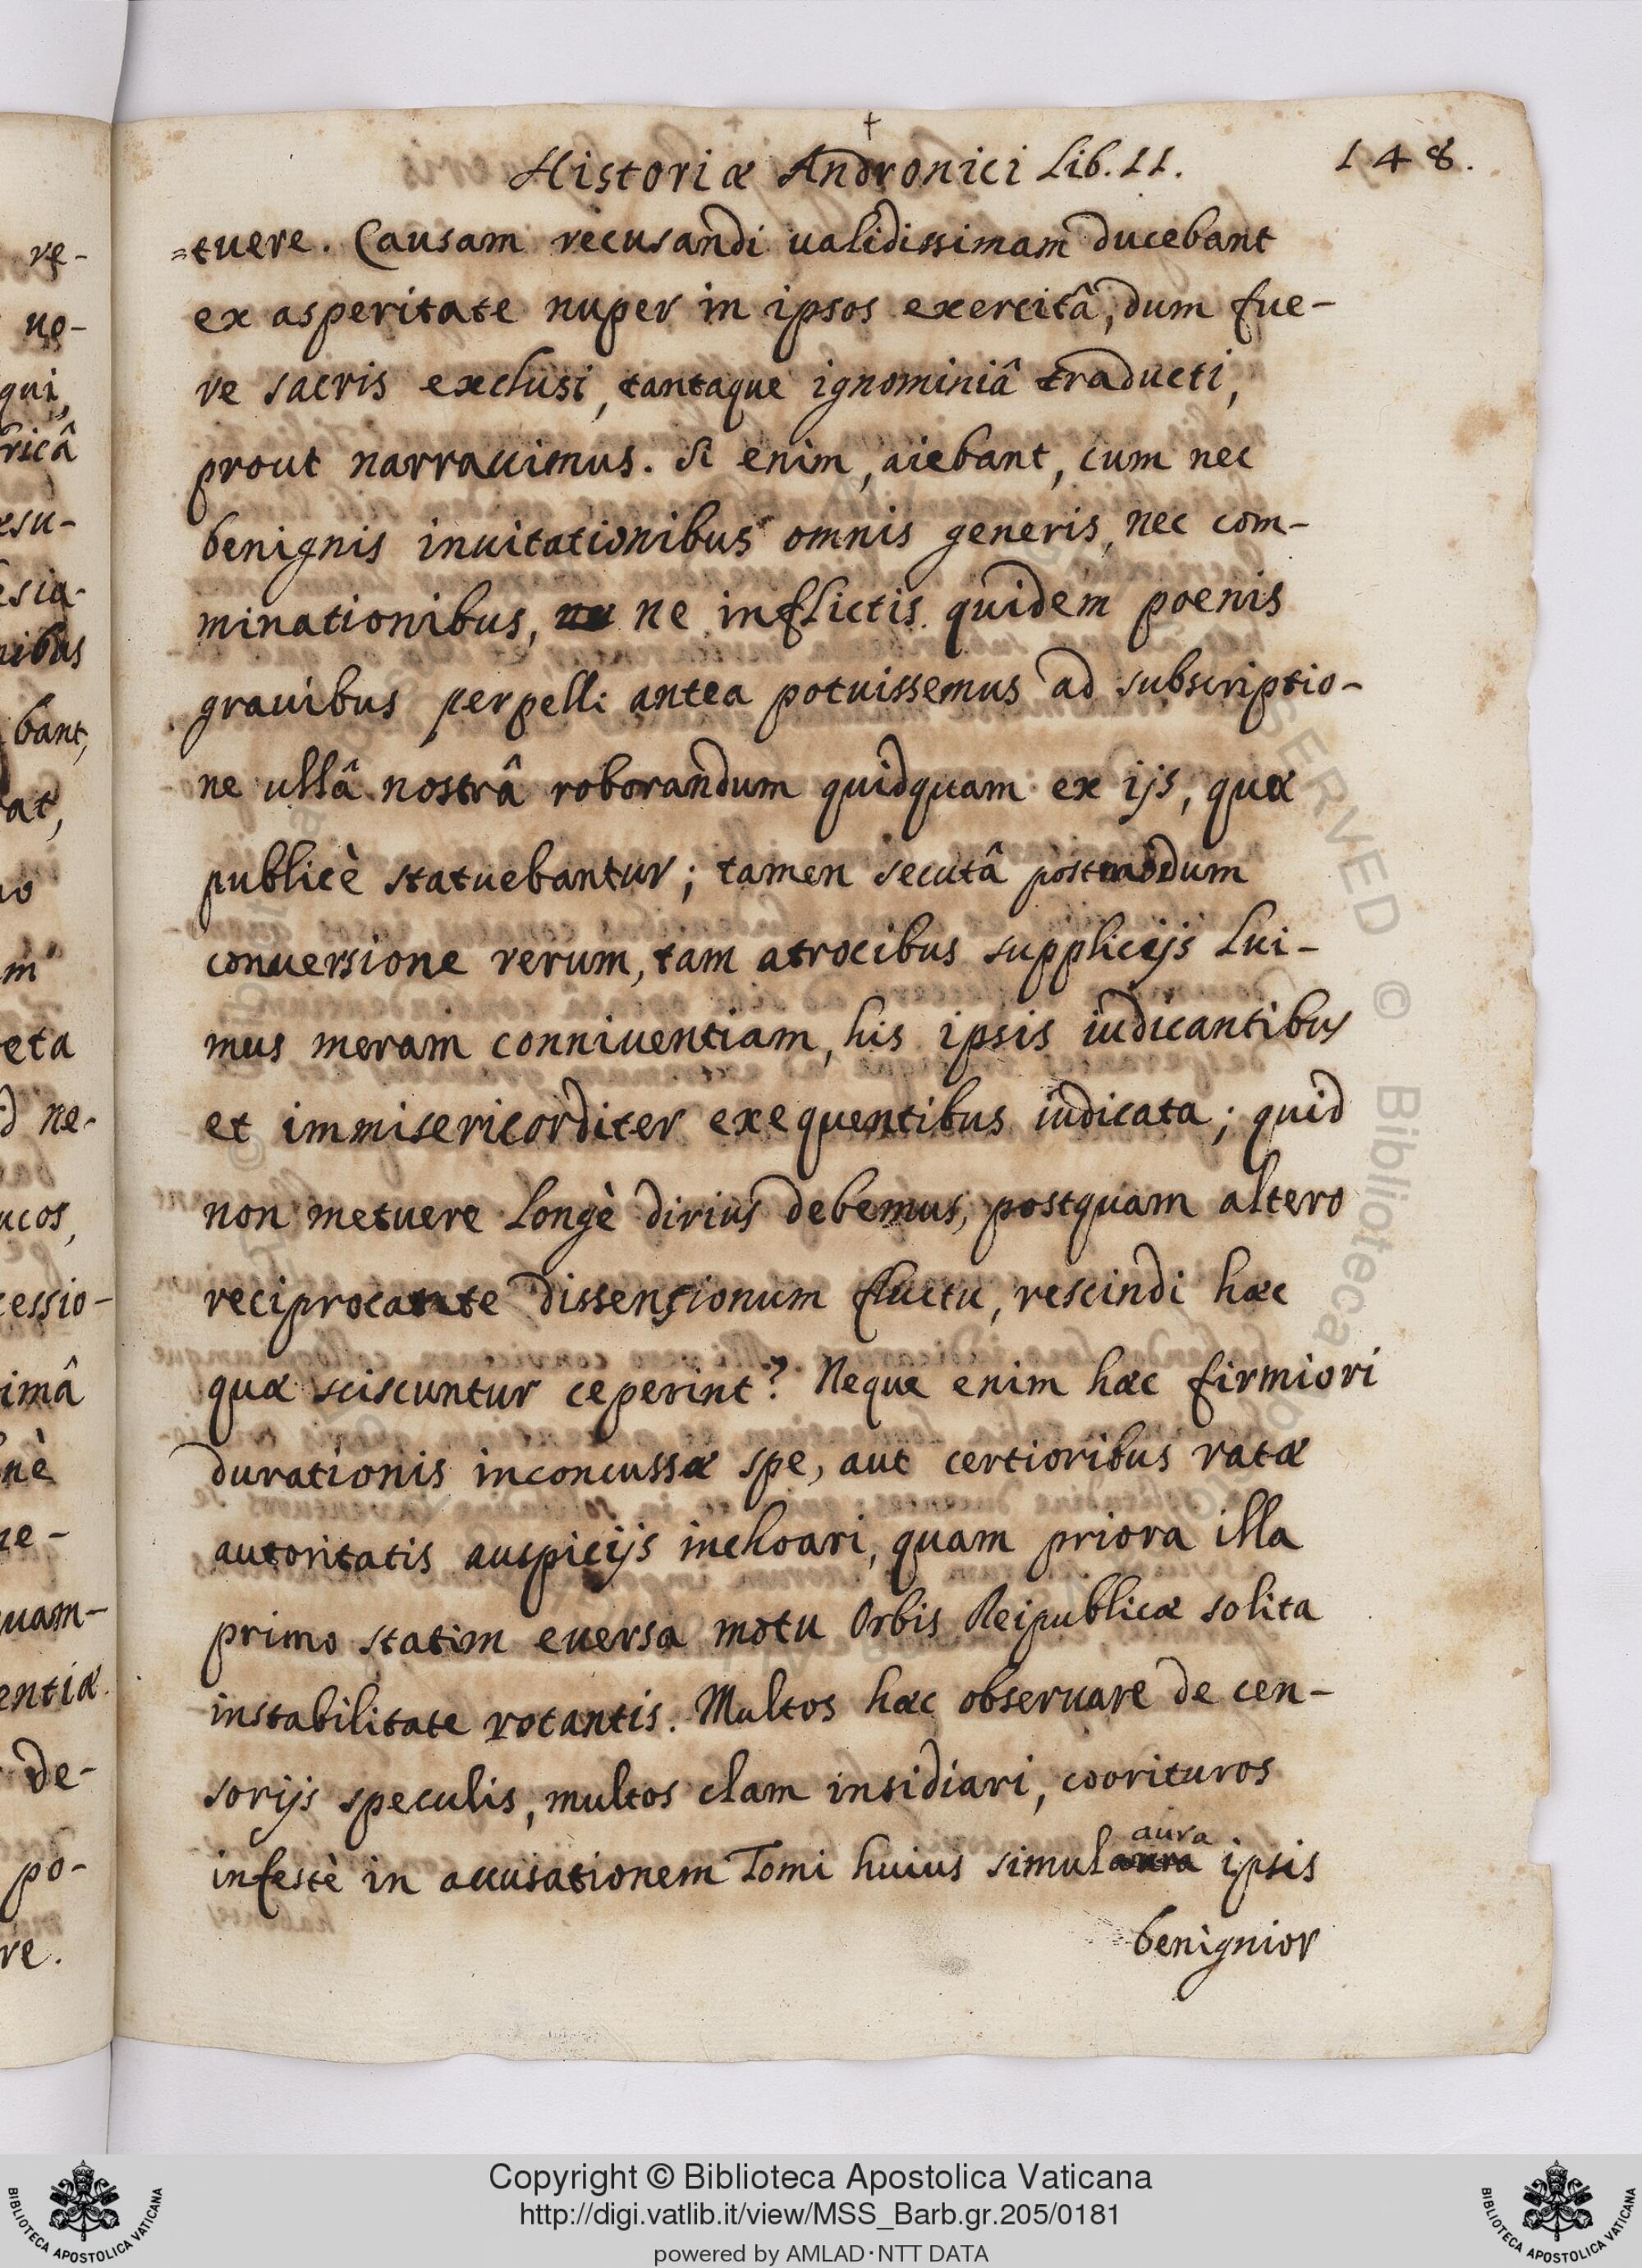 †
Historiæ Andronici Lib. II. 148.
=tuere. Causam recusandi ualidissimam ducebant
ex asperitate nuper in ipsos exercitâ, dum fue-
re sacris exclusi, tantaque ignominiâ traducti,
prout narrauimus. Si enim, aiebant, cum nec
benignis inuitationibus omnis generis, nec com-
minationibus, ne inflictis quidem poenis
grauibus perpelli antea potuissemus ad subscriptio-
ne ullâ nostrâ roborandum quidquam ex ijs, quæ
publicè statuebantur; tamen secutâ postmodum
conuersione rerum, tam atrocibus supplicijs lui-
mus meram conniuentiam, his ipsis iudicantibus
et immisericorditer exequentibus iudicata; quid
non metuere longè dirius debemus, postquam altero
reciprocante dissensionum fluctu, rescindi hæc
quæ sciscuntur ceperint? Neque enim hæc firmiori
durationis inconcussæ spe, aut certioribus ratæ
autoritatis auspicijs inchoari, quam priora illa
primo statim euersa motu Orbis Reipublicæ solita
instabilitate rotantis. Multos hæc obseruare de cen-
sorijs speculis, multos clam insidiari, coorituros
aura
infestè in accusationem Tomi huius simul aura ipsis
benignior
re-
no-
qui,
ricâ
esu-
esia-
nibus
bant,
at,
no
m
eta
d ne-
ucos,
cessio-
imâ
nè
ne-
uam-
entiæ.
de-
po-
re.
SERVED © Biblioteca Apo
Copyright © Biblioteca Apostolica Vaticana
http://digi.vatlib.it/view/MSS_Barb.gr.205/0181
powered by AMLAD·NTT DATA
BIBLIOTECA APOSTOLICA VATICANA
BIBLIOTECA APOSTOLICA VATICANA